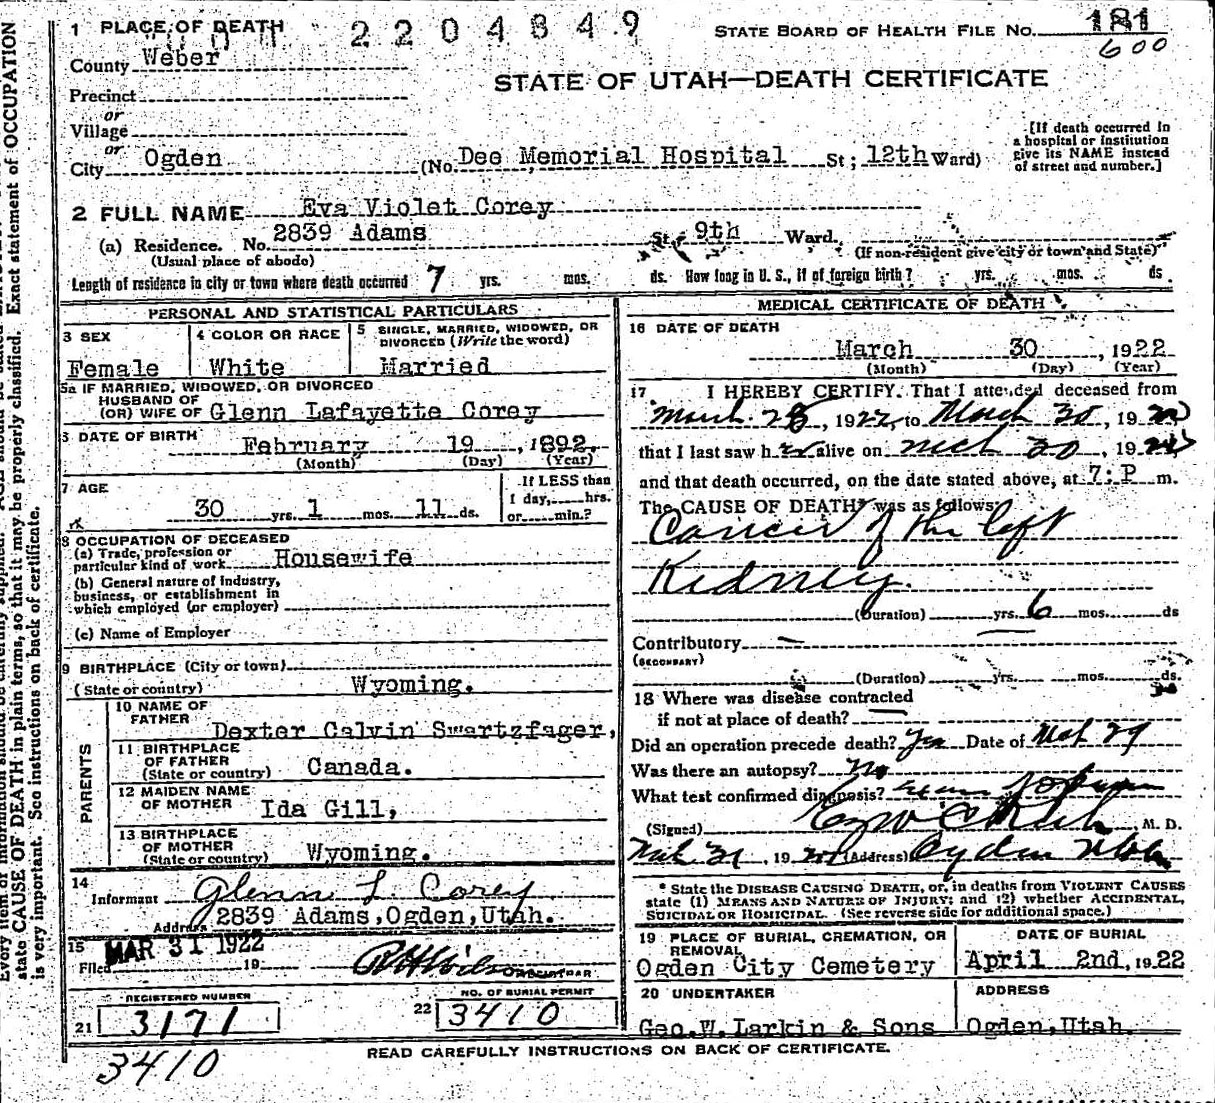 1 PLACE OF DEATH
2204849
STATE BOARD OF HEALTH FILE No. 181
600
County Weber
STATE OF UTAH—DEATH CERTIFICATE
Precinct
or
Village
or
City Ogden (No. Dee Memorial Hospital St; 12th Ward)
[If death occurred in
a hospital or institution
give its NAME instead
of street and number.]
2 FULL NAME Eva Violet Corey
(a) Residence. No. 2839 Adams St; 9th Ward.
(Usual place of abode) (If non-resident give city or town and State)
Length of residence in city or town where death occurred 7 yrs. mos. ds. How long in U. S., if of foreign birth? yrs. mos. ds
PERSONAL AND STATISTICAL PARTICULARS
3 SEX
Female
4 COLOR OR RACE
White
5 SINGLE, MARRIED, WIDOWED, OR
DIVORCED (Write the word)
Married
5a IF MARRIED, WIDOWED, OR DIVORCED
HUSBAND OF
(OR) WIFE OF Glenn Lafayette Corey
DATE OF BIRTH February 19, 1892.
(Month) (Day) (Year)
7 AGE
30 yrs. 1 mos. 11 ds.
If LESS than
1 day, hrs.
or min.?
8 OCCUPATION OF DECEASED
(a) Trade, profession or
particular kind of work Housewife
(b) General nature of industry,
business, or establishment in
which employed (or employer)
(c) Name of Employer
9 BIRTHPLACE (City or town)
(State or country) Wyoming.
PARENTS
10 NAME OF
FATHER Dexter Calvin Swartzfager,
11 BIRTHPLACE
OF FATHER
(State or country) Canada.
12 MAIDEN NAME
OF MOTHER Ida Gill,
13 BIRTHPLACE
OF MOTHER
(State or country) Wyoming.
14
Informant Glenn L Corey
Address 2839 Adams, Ogden, Utah.
15
Filed MAR 31 1922 19
REGISTRAR
REGISTERED NUMBER
21 3171
NO. OF BURIAL PERMIT
22 3410
3410
MEDICAL CERTIFICATE OF DEATH
16 DATE OF DEATH
March 30, 1922
(Month) (Day) (Year)
17 I HEREBY CERTIFY. That I attended deceased from
March 28, 1922, to March 30, 1922
that I last saw her alive on Mch 30, 1922
and that death occurred, on the date stated above, at 7: P m.
The CAUSE OF DEATH* was as follows
Cancer of the left
Kidney.
(Duration) yrs. 6 mos. ds
Contributory —
(SECONDARY)
(Duration) yrs. mos. ds.
18 Where was disease contracted
if not at place of death? —
Did an operation precede death? Yes Date of Mch 29
Was there an autopsy? No
What test confirmed diagnosis?
(Signed) M. D.
Mch 31, 1922 (Address) Ogden Utah
* State the DISEASE CAUSING DEATH, or, in deaths from VIOLENT CAUSES
state (1) MEANS AND NATURE OF INJURY; and (2) whether ACCIDENTAL,
SUICIDAL OR HOMICIDAL. (See reverse side for additional space.)
19 PLACE OF BURIAL, CREMATION, OR
REMOVAL
Ogden City Cemetery
DATE OF BURIAL
April 2nd, 1922
20 UNDERTAKER
Geo. W. Larkin & Sons
ADDRESS
Ogden, Utah.
READ CAREFULLY INSTRUCTIONS ON BACK OF CERTIFICATE.
state CAUSE OF DEATH in plain terms, so that it may be properly classified. Exact statement of OCCUPATION
is very important. See instructions on back of certificate.